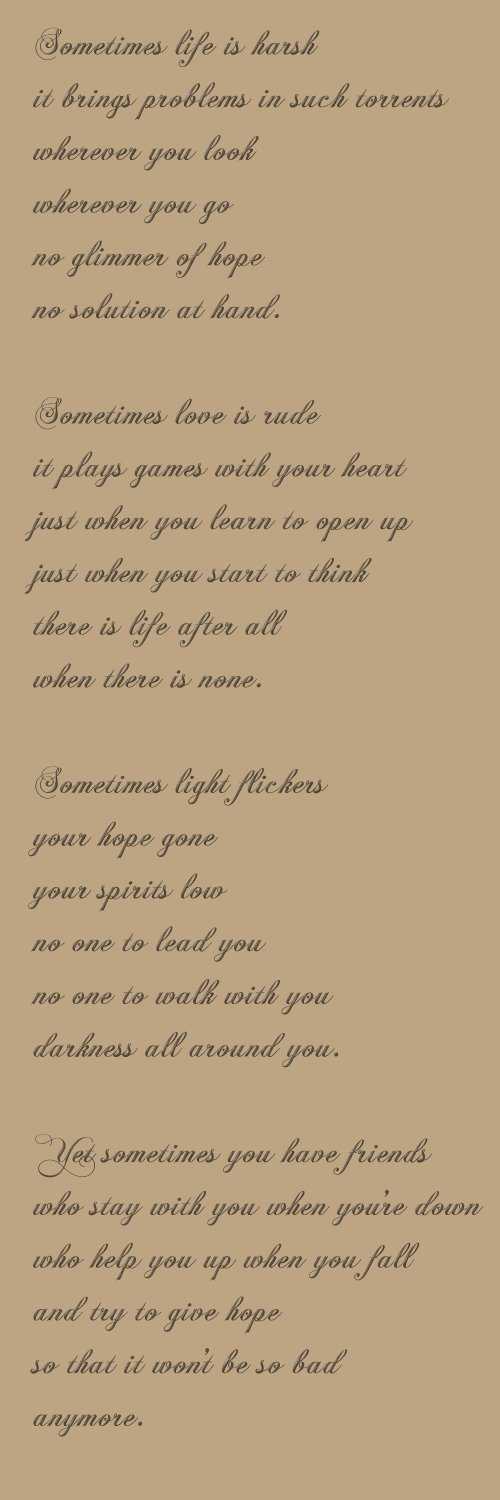 Sometimes life is harsh
it brings problems in such torrents
wherever you look
wherever you go
no glimmer of hope
no solution at hand.

Sometimes love is rude
it plays games with your heart
just when you learn to open up
just when you start to think
there is life after all
when there is none.

Sometimes light flickers
your hope gone
your spirits low
no one to lead you
no one to walk with you
darkness all around you.

Yet sometimes you have friends
who stay with you when you're down
who help you up when you fall
and try to give hope
so that it won't be so bad
anymore.